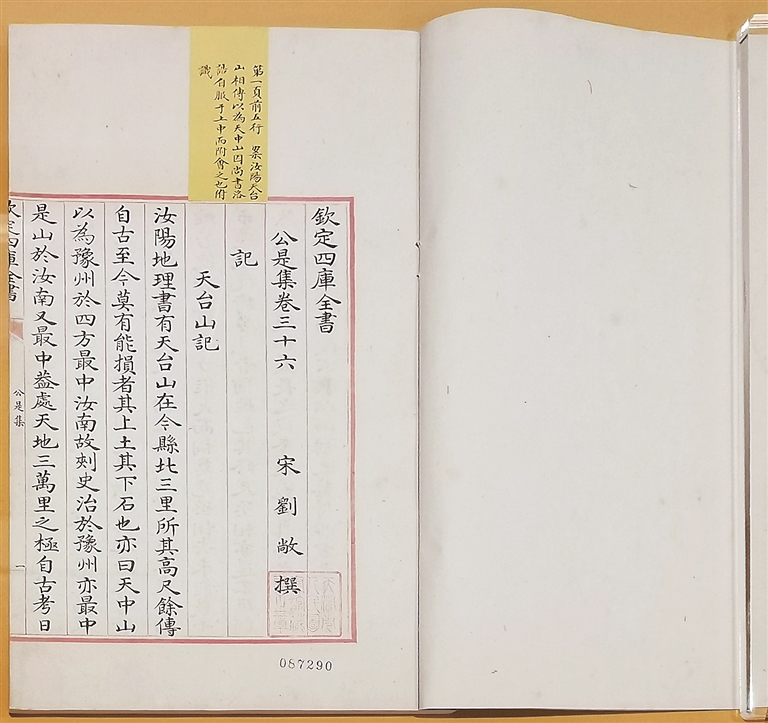 第一頁前五行 案汝陽天台
山相傳以為天中山因尚書洛
誥自服于土中而附會之也附
識
欽定四庫全書
公是集卷三十六 宋 劉敞 撰
記
天台山記
汝陽地理書有天台山在今縣北三里所其高尺餘傳
自古至今莫有能損者其上土其下石也亦曰天中山
以為豫州於四方最中汝南故刺史治於豫州亦最中
是山於汝南又最中蓋處天地三萬里之極自古考日
欽定四庫全書
公是集
一
087290